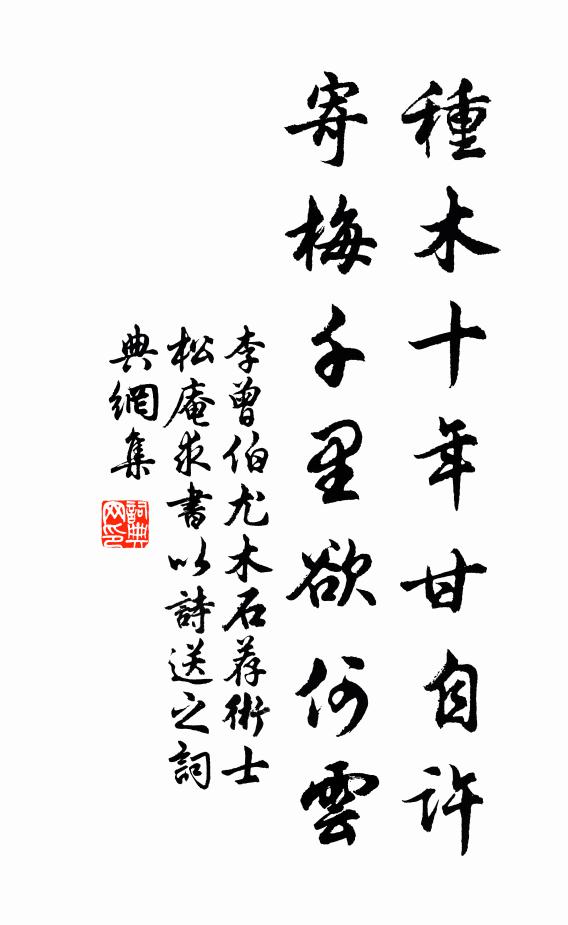 種木十年甘自許
寄梅千里欲何雲
李曾伯尤木石荐術士
松庵求書以詩送之詞
典網集
詞典網印